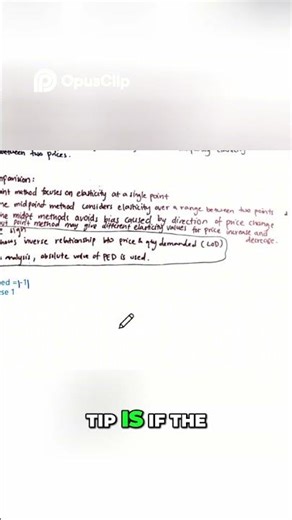 OpusClip
between two prices.
mparision:
int method focuses on elasticity at a single point
he midpoint method considers elasticity over a range between two points
he midpt methods avoids bias caused by direction of price change
out point method may give different elasticity values for price increase and
decrease.
e sign
hows inverse relationship b/w price & qty demanded (LoD)
analysis, absolute value of PED is used.
ped =|-1|
se 1
TIP IS IF THE